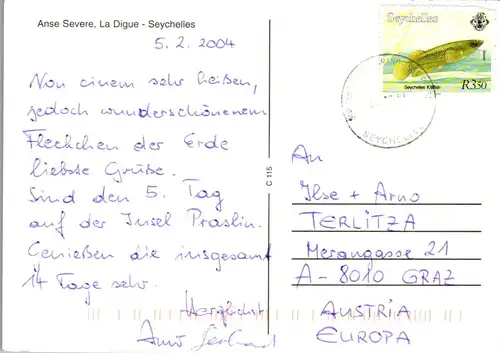 Anse Severe, La Digue - Seychelles
5.2.2004
Von einem sehr heißen,
jedoch wunderschönenem
Fleckchen der Erde
liebste Grüße.
Sind den 5. Tag
auf der Insel Praslin.
Genießen die insgesamt
14 Tage sehr.
Herzlichst
C 115
Seychelles
Seychelles Killifish
R3.50
SEYCHELLES
An
Ilse + Arno
TERLITZA
Merangasse 21
A-8010 GRAZ
AUSTRIA
EUROPA